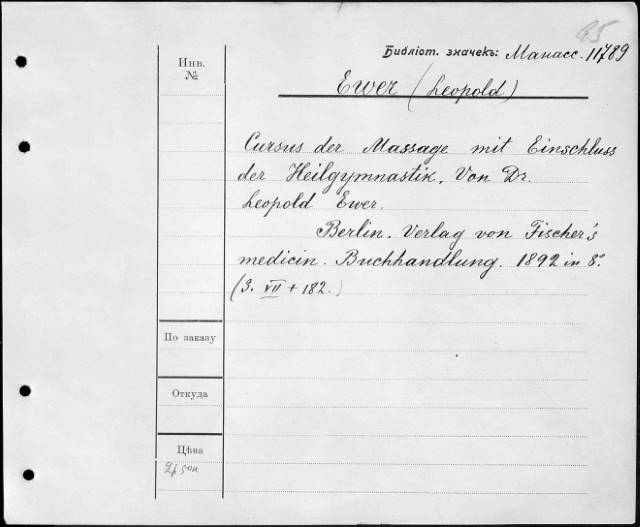 95
Библіот. значекъ: Манасс. 11789
Инв.
№
Ewer (Leopold)
Cursus der Massage mit Einschluss
der Heilgymnastik. Von Dr.
Leopold Ewer.
Berlin. Verlag von Fischer's
medicin. Buchhandlung. 1892 in 8°.
(3. VII + 182.)
По заказу
Откуда
Цѣна